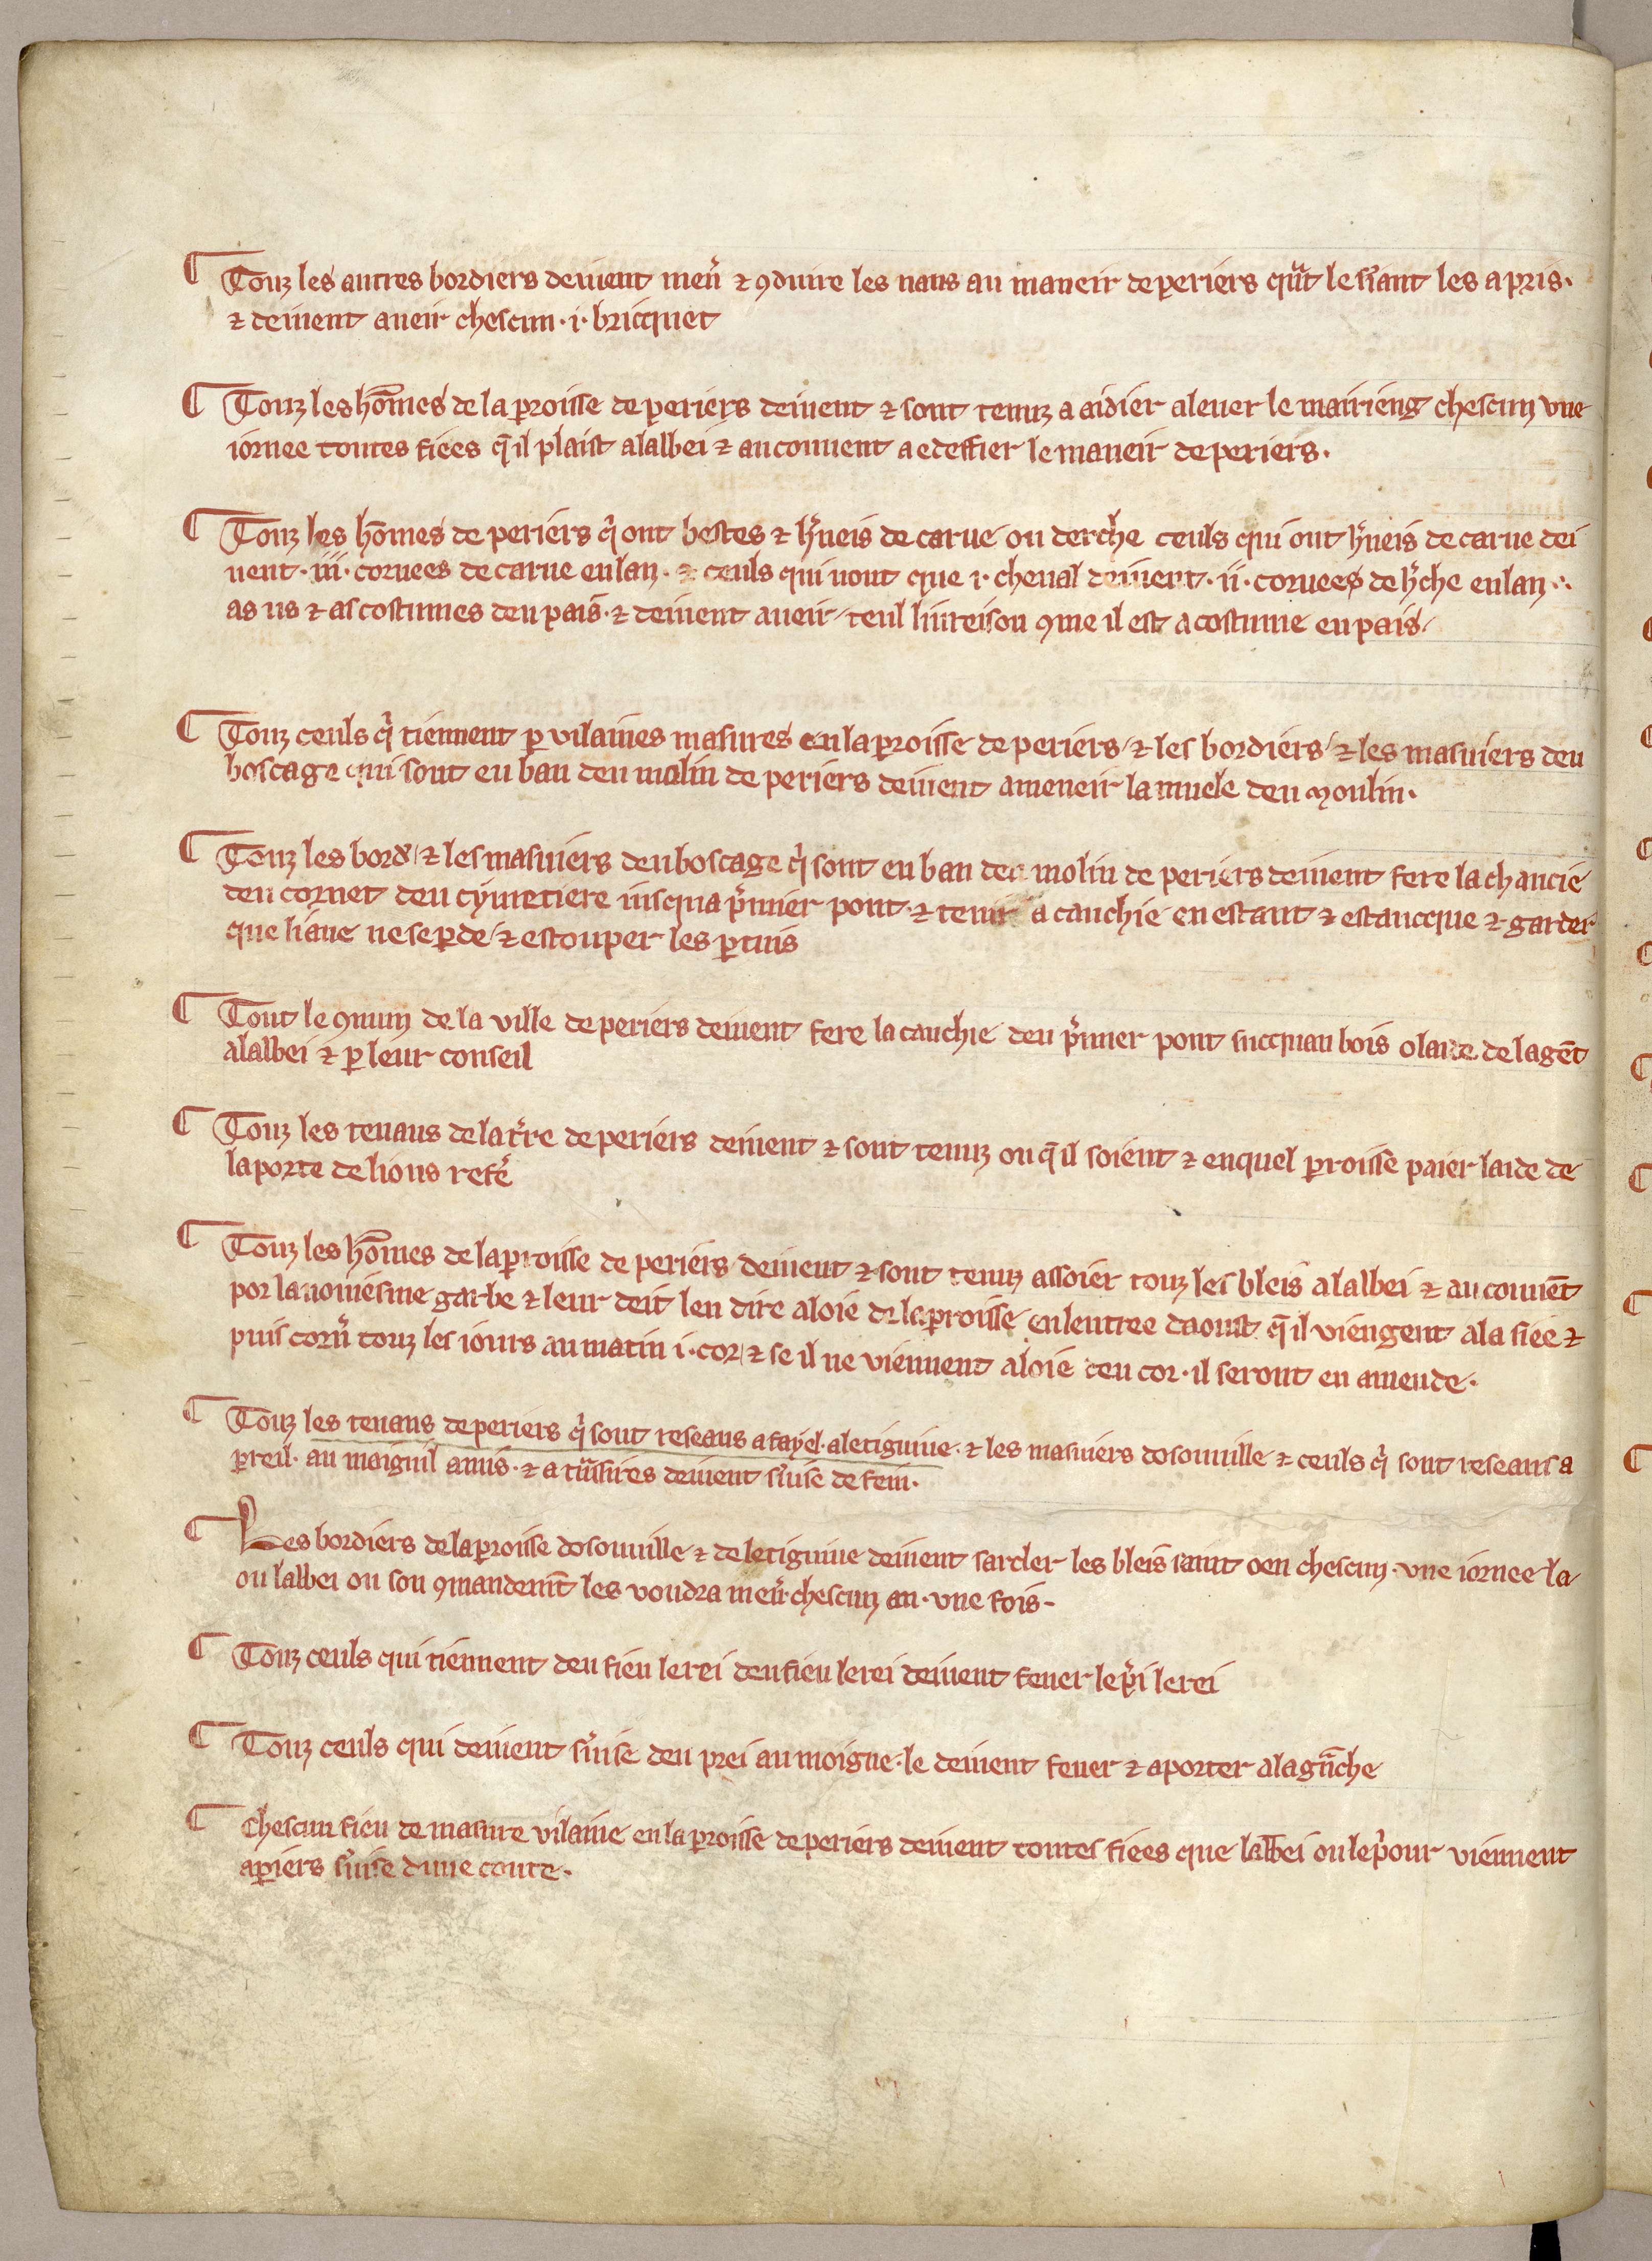 ¶ Touz les autres bordiers deiuent men̾ ⁊ ꝯduire les nans au maneir de periers qͣnt le s̾iant les a pris·
⁊ deiuent aueir chescun ·i· bricquet
¶ Touz les hōmes de la ꝑroisse de periers deiuent ⁊ sont tenuz a aidier a leuer le mairieng chescun vne
iornee toutes fiees q̄ il plaist a labbei ⁊ au conuent a edeffier le maneir de periers·
¶ Touz les hōmes de periers qͥ ont bestes ⁊ h̾neis de carue ou derche ceuls qui ont h̾neis de carue dei
uent ·iii· coruees de carue en lan· ⁊ ceuls qui nont que ·i· cheual deiuent ·ii· coruees de h̾che en lan·
as us ⁊ as costumes deu pais· ⁊ deiuent aueir teul liureison ꝯme il est a costume eu pais
¶ Touz ceuls qͥ tiennent ꝑ vilaines masures en la ꝑroisse de periers ⁊ les bordiers ⁊ les masuiers deu
boscage qui sont eu ban deu molin de periers deiuent ameneir la muele deu moulin·
¶ Touz les bord̾ ⁊ les masuiers deu boscage qͥ sont eu ban deu molin de periers deiuent fere la chaucie
deu cornet deu cymetiere iusqua pͥmier pont ⁊ tenir a cauchie en estant ⁊ estancque ⁊ garder
que liaue ne se ꝑde ⁊ estouper les ꝑtuis
¶ Tout le ꝯmun de la ville de periers deiuent fere la cauchie deu pͥmier pont sucquau bois o laide de la gēt
a labbei ⁊ ꝑ leur conseil
¶ Touz les tenans de la t̾re de periers deiuent ⁊ sont tenuz ou q̄ il soient ⁊ en quel ꝑroisse paier laide de
la porte de lions refe̾
¶ Touz les hōmes de la ꝑroisse de periers deiuent ⁊ sont tenuz assoier touz les bleis a labbei ⁊ au conuēt
por la nouiesme garbe ⁊ leur deit len dire a loie de la ꝑroisse en lentree daoust q̄ il viengent a la siee ⁊
puis corn̾ touz les iours au matin ·i· cor ⁊ se il ne viennent a loie deu cor· il seront en amende·
¶ Touz les tenans de periers qͥ sont reseans a fayel· a letiguiue· ⁊ les masuiers dosouuille ⁊ ceuls qͥ sont reseans a
ꝑreil· au maignil amis· ⁊ a tͣnssires deiuent s̾uise de fein·
¶ Les bordiers de la ꝑroisse dosouuille ⁊ de letiguiue deiuent sarcler les bleis saint oen chescun· vne iornee la
ou labbei ou son ꝯmandemēt les voudra men̾· chescun an· vne fois·
¶ Touz ceuls qui tiennent deu fieu le rei deu fieu le rei deiuent fener le pͥi le rei
¶ Touz ceuls qui deiuent s̾uise deu prei au moigne· le deiuent fener ⁊ aporter a la gͣnche
¶ Chescun fieu de masure vilaine en la ꝑroisse de periers deiuent toutes fiees que labbei ou le pͥour viennent
a ꝑiers s̾uise dune coute·